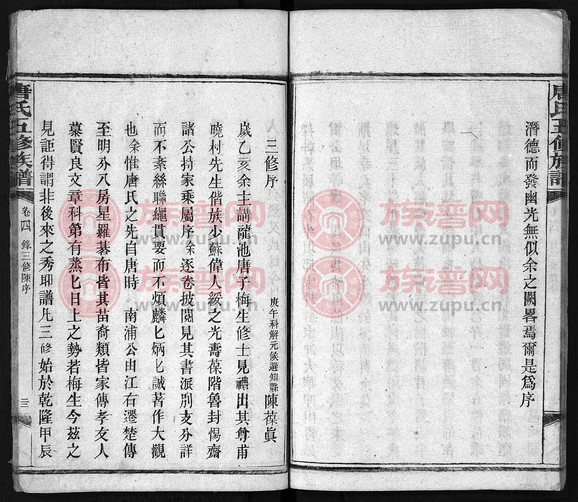 唐氏五修族譜
潛德而發幽光無似余之闕畧焉爾是為序
三修序
庚午科解元候選知縣陳葆眞
歲乙亥余主講龍池唐子梅生修士見禮出其尊甫
曉村先生偕族少蘇偉人綏之光壽葆階魯封惕齋
諸公持家乘屬序余逐卷披閱見其書派别支分詳
而不紊絲聯繩貫要而不煩麟匕炳匕誠著作大觀
也余惟唐氏之先自唐時 南浦公由江右遷楚傳
至明分八房星羅棊布皆其苗裔類皆家傳孝友人
慕賢良文章科第有蒸匕日上之勢若梅生今茲之
見詎得謂非後來之秀耶譜凡三修始於乾隆甲辰
唐氏五修族譜
卷四 錄三修陳序 三
族譜网
www.zupu.cn
族譜网
www.zupu.cn
族譜网
www.zupu.cn
族譜网
www.zupu.cn